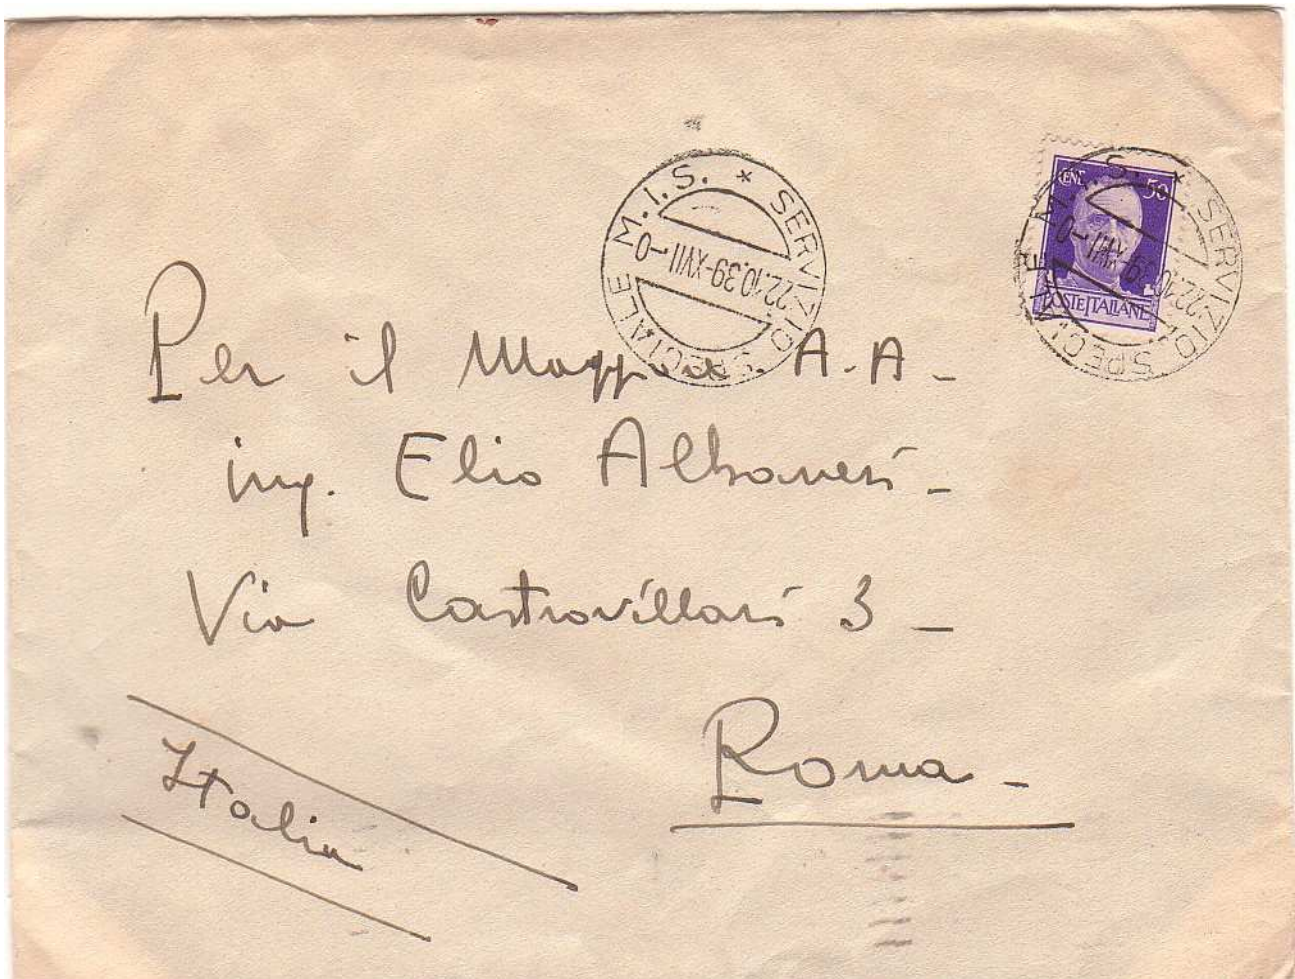 SERVIZIO SPECIALE M.I.S. *
22.10.39-XVII 1-0
CENT. 50
POSTE ITALIANE
SERVIZIO SPECIALE M.I.S. *
22.10.39-XVII 1-0
Per il Maggiore A.A-
ing. Elio Albanesi-
Via Castrovillari 3-
Roma-
Italia